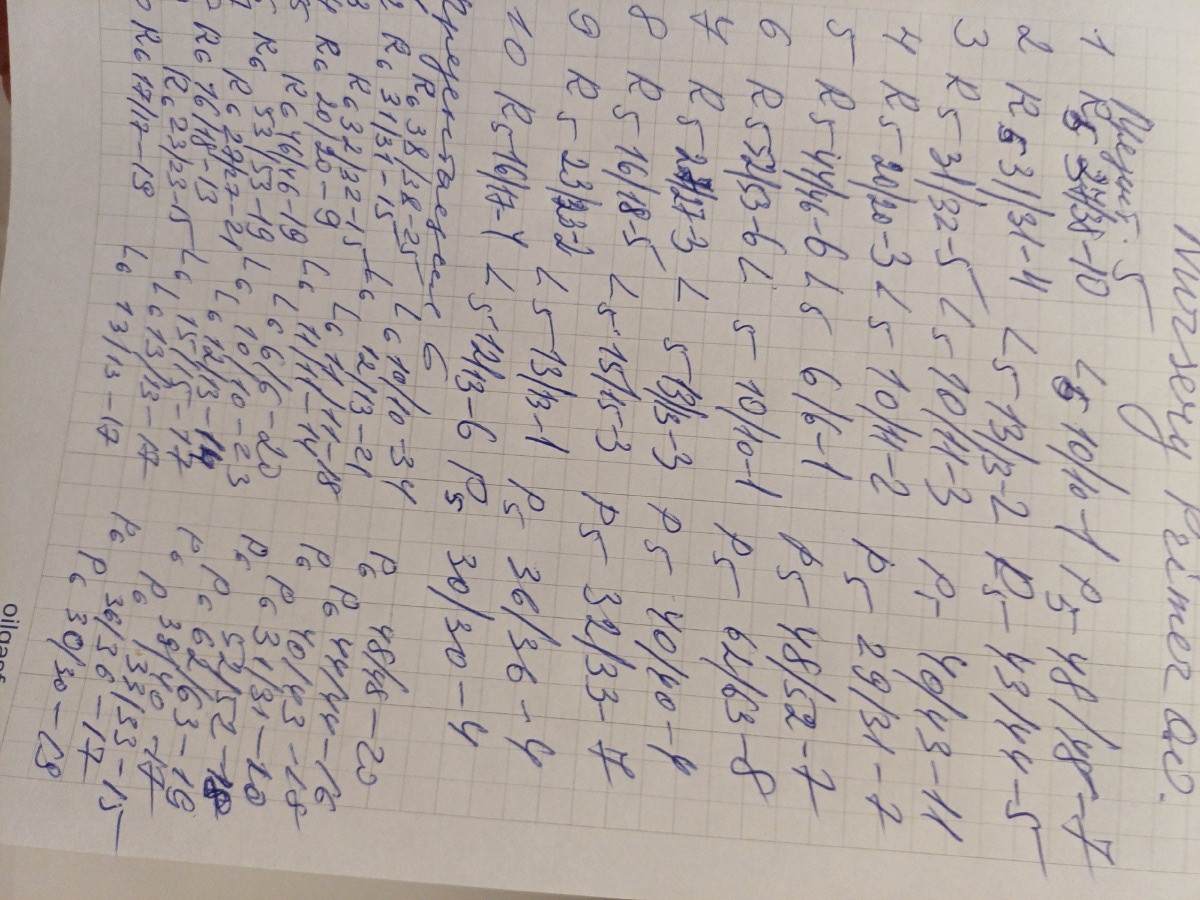 Nursery Primer ae.
Пузиб 5
1 R5 34/38-10 L5 10/10-1 P5 48/48-7
2 R5 31/31-4 L5 13/13-2 P5 43/44-5
3 R5 31/32-5 L5 10/11-3 P5 40/43-11
4 R5 20/20-3 L5 10/11-2 P5 29/31-7
5 R5 44/46-6 L5 6/6-1 P5 48/52-7
6 R5 52/53-6 L5 10/10-1 P5 62/63-8
7 R5 27/27-3 L5 13/13-3 P5 40/40-4
8 R5 16/18-5 L5 15/15-3 P5 32/33-7
9 R5 23/23-2 L5 13/13-1 P5 36/36-4
10 R5 16/17-1 L5 12/13-6 P5 30/30-4
6
R6 38/38-25 L6 10/10-34 P6 48/48-20
R6 31/31-15 L6 12/13-21 P6 44/44-16
R6 32/32-15 L6 11/11-18 P6 40/43-18
R6 20/20-9 L6 11/11-14 P6 31/31-10
R6 46/46-19 L6 6/6-20 P6 52/52-18
R6 53/53-19 L6 10/10-23 P6 62/63-19
R6 27/27-21 L6 12/13-14 P6 39/40-17
R6 16/18-13 L6 15/15-17 P6 33/33-15
R6 23/23-15 L6 13/13-17 P6 36/36-17
R6 17/17-19 L6 13/13-17 P6 30/30-19
oilgas